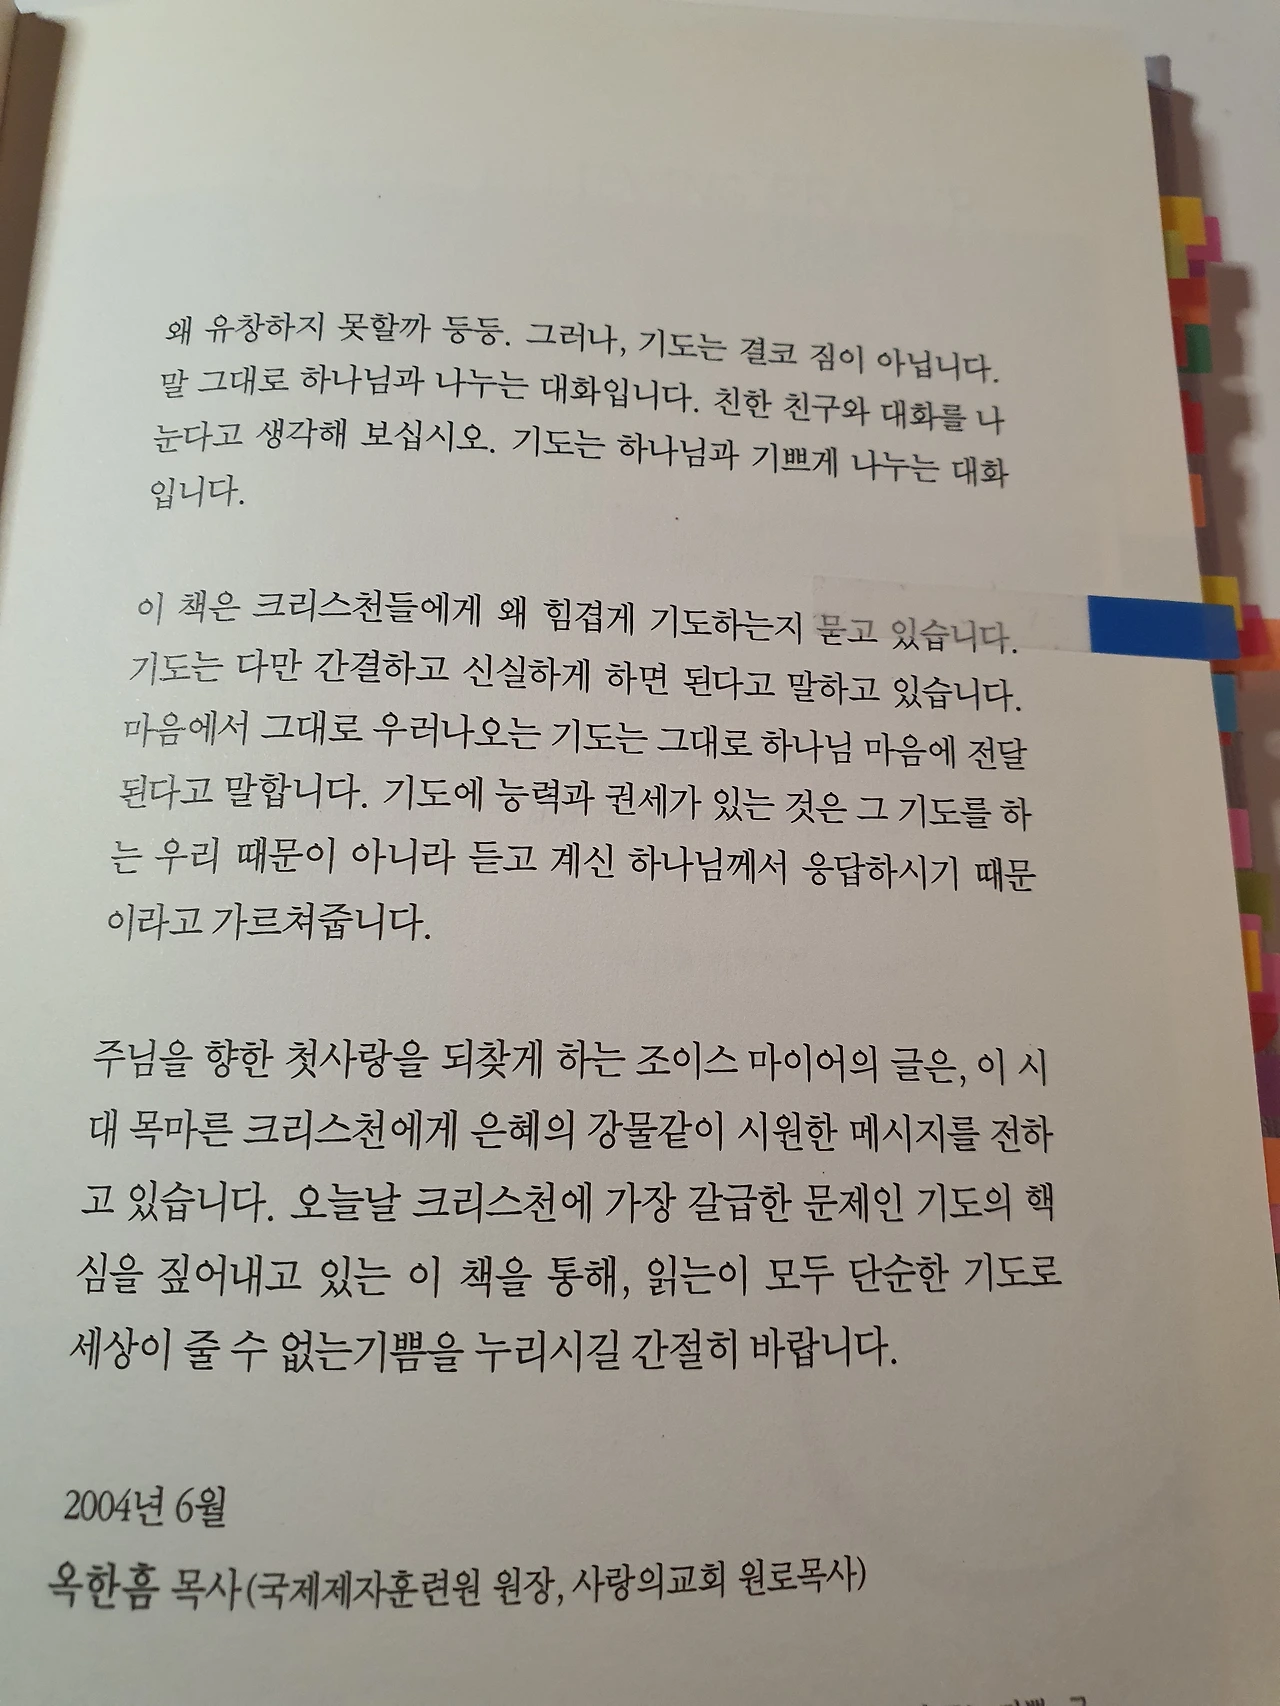 왜 유창하지 못할까 등등. 그러나, 기도는 결코 짐이 아닙니다.
말 그대로 하나님과 나누는 대화입니다. 친한 친구와 대화를 나
눈다고 생각해 보십시오. 기도는 하나님과 기쁘게 나누는 대화
입니다.
이 책은 크리스천들에게 왜 힘겹게 기도하는지 묻고 있습니다.
기도는 다만 간결하고 신실하게 하면 된다고 말하고 있습니다.
마음에서 그대로 우러나오는 기도는 그대로 하나님 마음에 전달
된다고 말합니다. 기도에 능력과 권세가 있는 것은 그 기도를 하
는 우리 때문이 아니라 듣고 계신 하나님께서 응답하시기 때문
이라고 가르쳐줍니다.
주님을 향한 첫사랑을 되찾게 하는 조이스 마이어의 글은, 이 시
대 목마른 크리스천에게 은혜의 강물같이 시원한 메시지를 전하
고 있습니다. 오늘날 크리스천에 가장 갈급한 문제인 기도의 핵
심을 짚어내고 있는 이 책을 통해, 읽는이 모두 단순한 기도로
세상이 줄 수 없는기쁨을 누리시길 간절히 바랍니다.
2004년 6월
옥한흠 목사(국제제자훈련원 원장, 사랑의교회 원로목사)